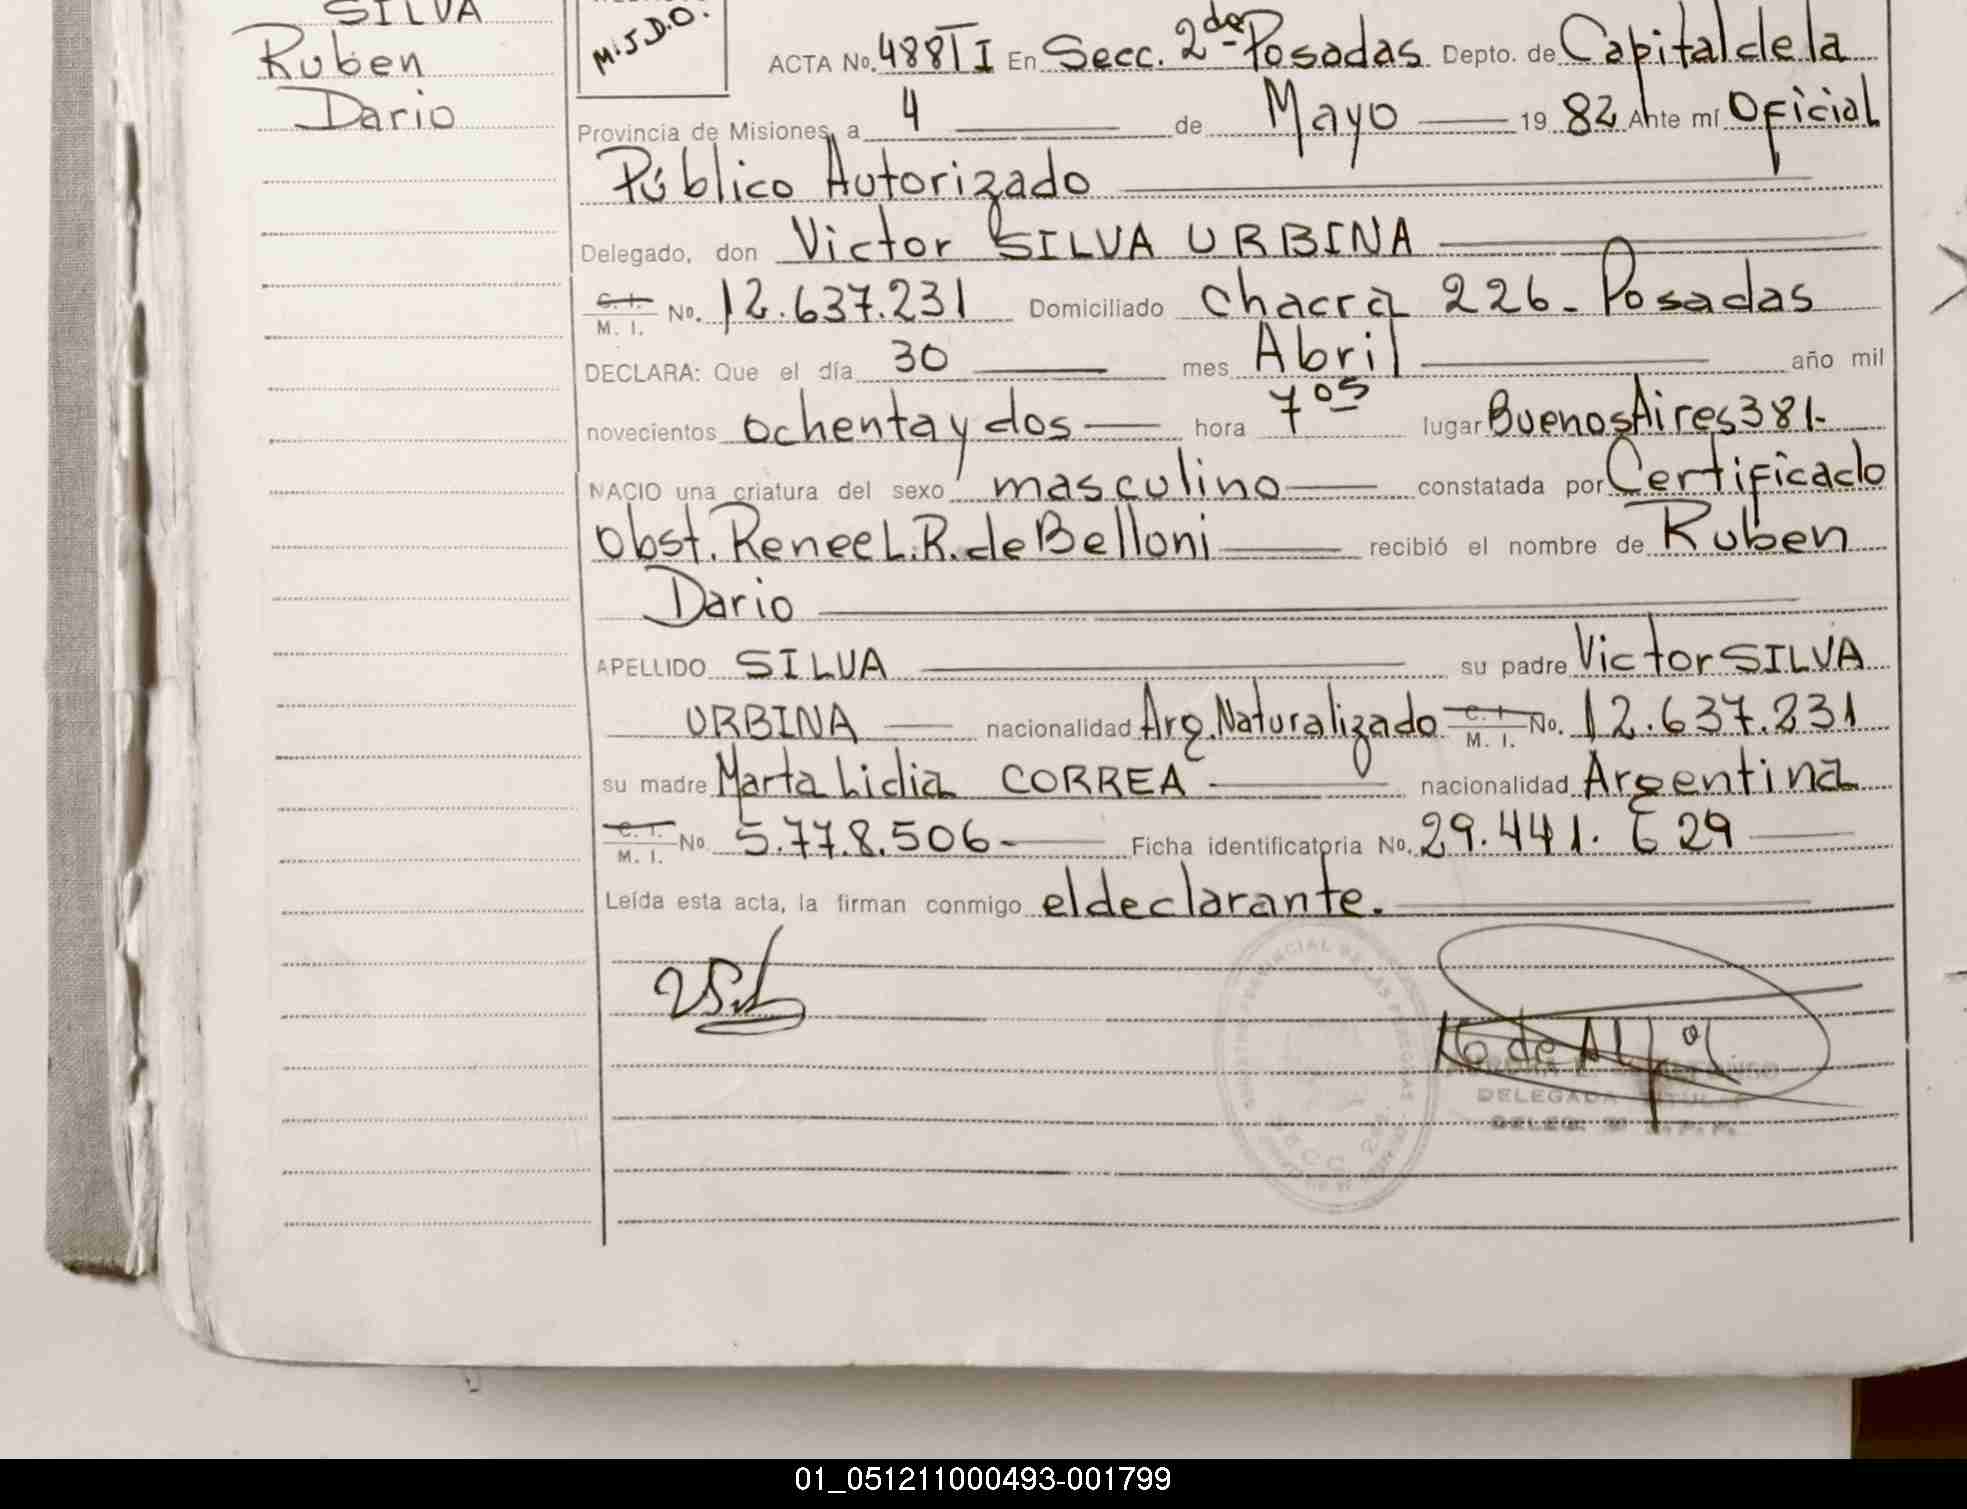 SILVA
Ruben
Dario
M.J.D.O.
ACTA No. 488 TI En Secc. 2da Posadas Depto. de Capital de la
Provincia de Misiones, a 4 de Mayo 1982 Ante mí Oficial
Público Autorizado
Delegado, don Victor SILVA URBINA
C. I. M. I. No. 12.637.231 Domiciliado Chacra 226- Posadas
DECLARA: Que el día 30 mes Abril año mil
novecientos ochenta y dos hora 7 05 lugar Buenos Aires 381-
NACIO una criatura del sexo masculino constatada por Certificado
Obst. Renee L. R. de Belloni recibió el nombre de Ruben
Dario
APELLIDO SILVA su padre Victor SILVA
URBINA nacionalidad Arg. Naturalizado C. I. M. I. No. 12.637.231
su madre Marta Lidia CORREA nacionalidad Argentina
C. I. M. I. No. 5.778.506- Ficha identificatoria No. 29.441.629
Leída esta acta, la firman conmigo el declarante.
DELEGADA TITULAR
01_051211000493-001799